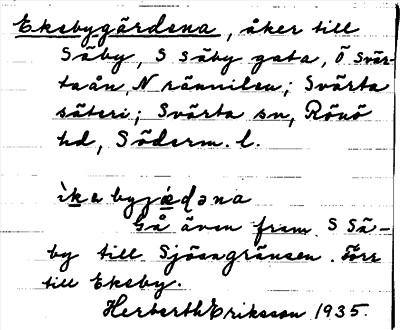 Eksbygärdena, åker till
Säby, S Säby gata, Ö Svär-
taån, N rännilen; Svärta
säteri; Svärta sn, Rönö
hd, Söderm. l.
ìkębyjæ̨dəna
Gå även fram S Sä-
by till Sjösagränsen. Förr
till Eksby.
Herberth Eriksson 1935.